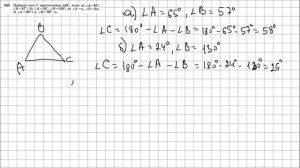 Найдите угол C треугольника ABC, если: а) ∠A=65°,
∠B=57°; б) ∠A=24°, ∠B=130°;
B
A
C
а) ∠A = 65°, ∠B = 57°
∠C = 180° - ∠A - ∠B = 180° - 65° - 57° = 58°
б) ∠A = 24°, ∠B = 130°
∠C = 180° - ∠A - ∠B = 180° - 24° - 130° = 26°